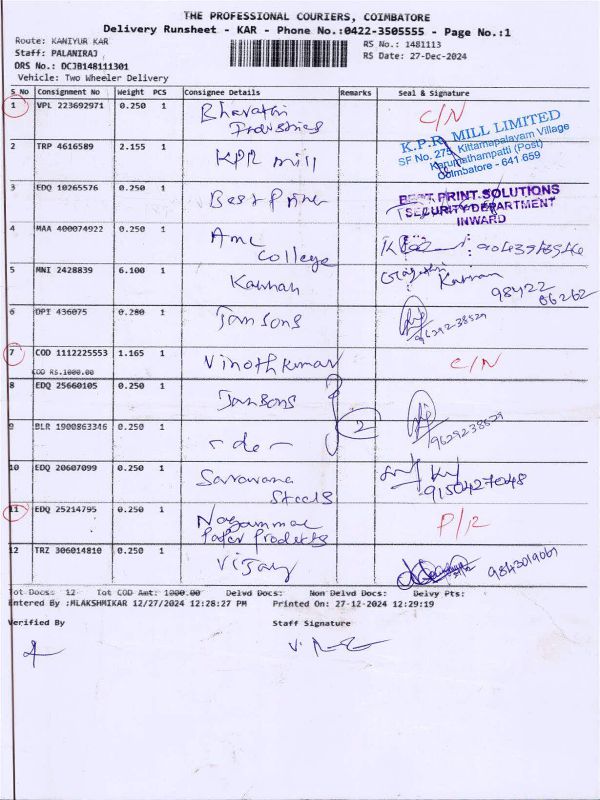 THE PROFESSIONAL COURIERS, COIMBATORE
Delivery Runsheet - KAR - Phone No.:0422-3505555 - Page No.:1
Route: KANIYUR KAR RS No.: 1481113
Staff: PALANIRAJ RS Date: 27-Dec-2024
DRS No.: DCJB148111301
Vehicle: Two Wheeler Delivery
S No Consignment No Weight PCS Consignee Details Remarks Seal & Signature
1 VPL 223692971 0.250 1 Bharathi Industries C/N
K.P.R. MILL LIMITED
SF No. 275, Kittampalayam Village
Karumathampatti (Post)
Coimbatore - 641 659
2 TRP 4616589 2.155 1 KPR mill
3 EDQ 10265576 0.250 1 Best Print
BEST PRINT SOLUTIONS
SECURITY DEPARTMENT
INWARD
4 MAA 400074922 0.250 1 AMC College
5 MNI 2428839 6.100 1 Kannan Kannan 98422 66262
6 DPI 436075 0.280 1 Jansons 9629238529
7 COD 1112225553 1.165 1 Vinoth Kumar C/N
COD RS.1000.00
8 EDQ 25660105 0.250 1 Jansons 9629238529
9 BLR 1900863346 0.250 1 - do - 2
10 EDQ 20607099 0.250 1 Saravana Steels 9150427048
11 EDQ 25214795 0.250 1 Nagammai Paper Products P/R
12 TRZ 306014810 0.250 1 Vijay 9843019061
Tot Docs: 12 Tot COD Amt: 1000.00 Delvd Docs: Non Delvd Docs: Delvy Pts:
Entered By :MLAKSHMIKAR 12/27/2024 12:28:27 PM Printed On: 27-12-2024 12:29:19
Verified By Staff Signature